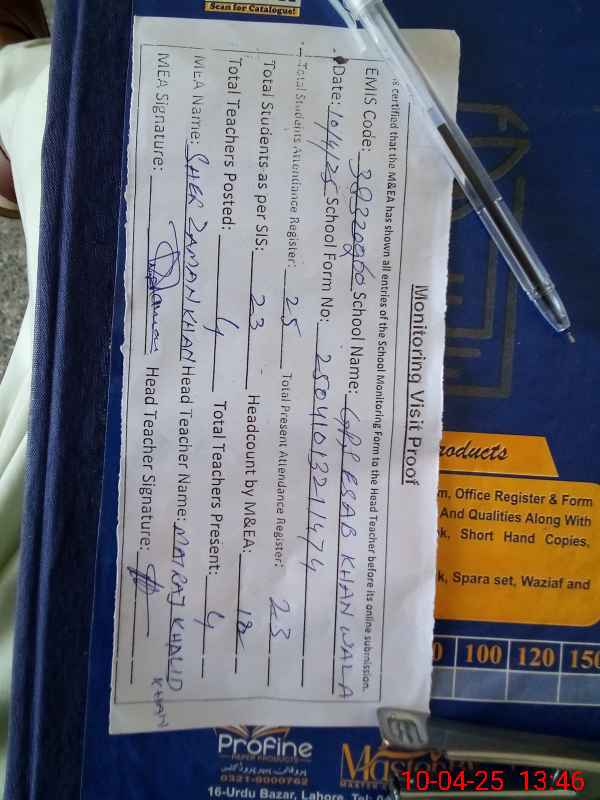 Scan for Catalogue!
Monitoring Visit Proof
is certified that the M&EA has shown all entries of the School Monitoring Form to the Head Teacher before its online submission.
EMIS Code: School Name: ESAB KHAN WALA
Date: 10/4/25 School Form No: 250410132111474
Total Students Attendance Register: 25 Total Present Attendance Register: 23
Total Students as per SIS: 23 Headcount by M&EA:
Total Teachers Posted: 4 Total Teachers Present: 4
MEA Name: SHER ZAMAN KHAN Head Teacher Name: KHALID KHAN
MEA Signature: Head Teacher Signature:
roducts
m, Office Register & Form
And Qualities Along With
k, Short Hand Copies,
k, Spara set, Waziaf and
0 100 120 150
ProFine
PAPER PRODUCTS
0321-9000762
16-Urdu Bazar, Lahore. Tel:
10-04-25 13:46